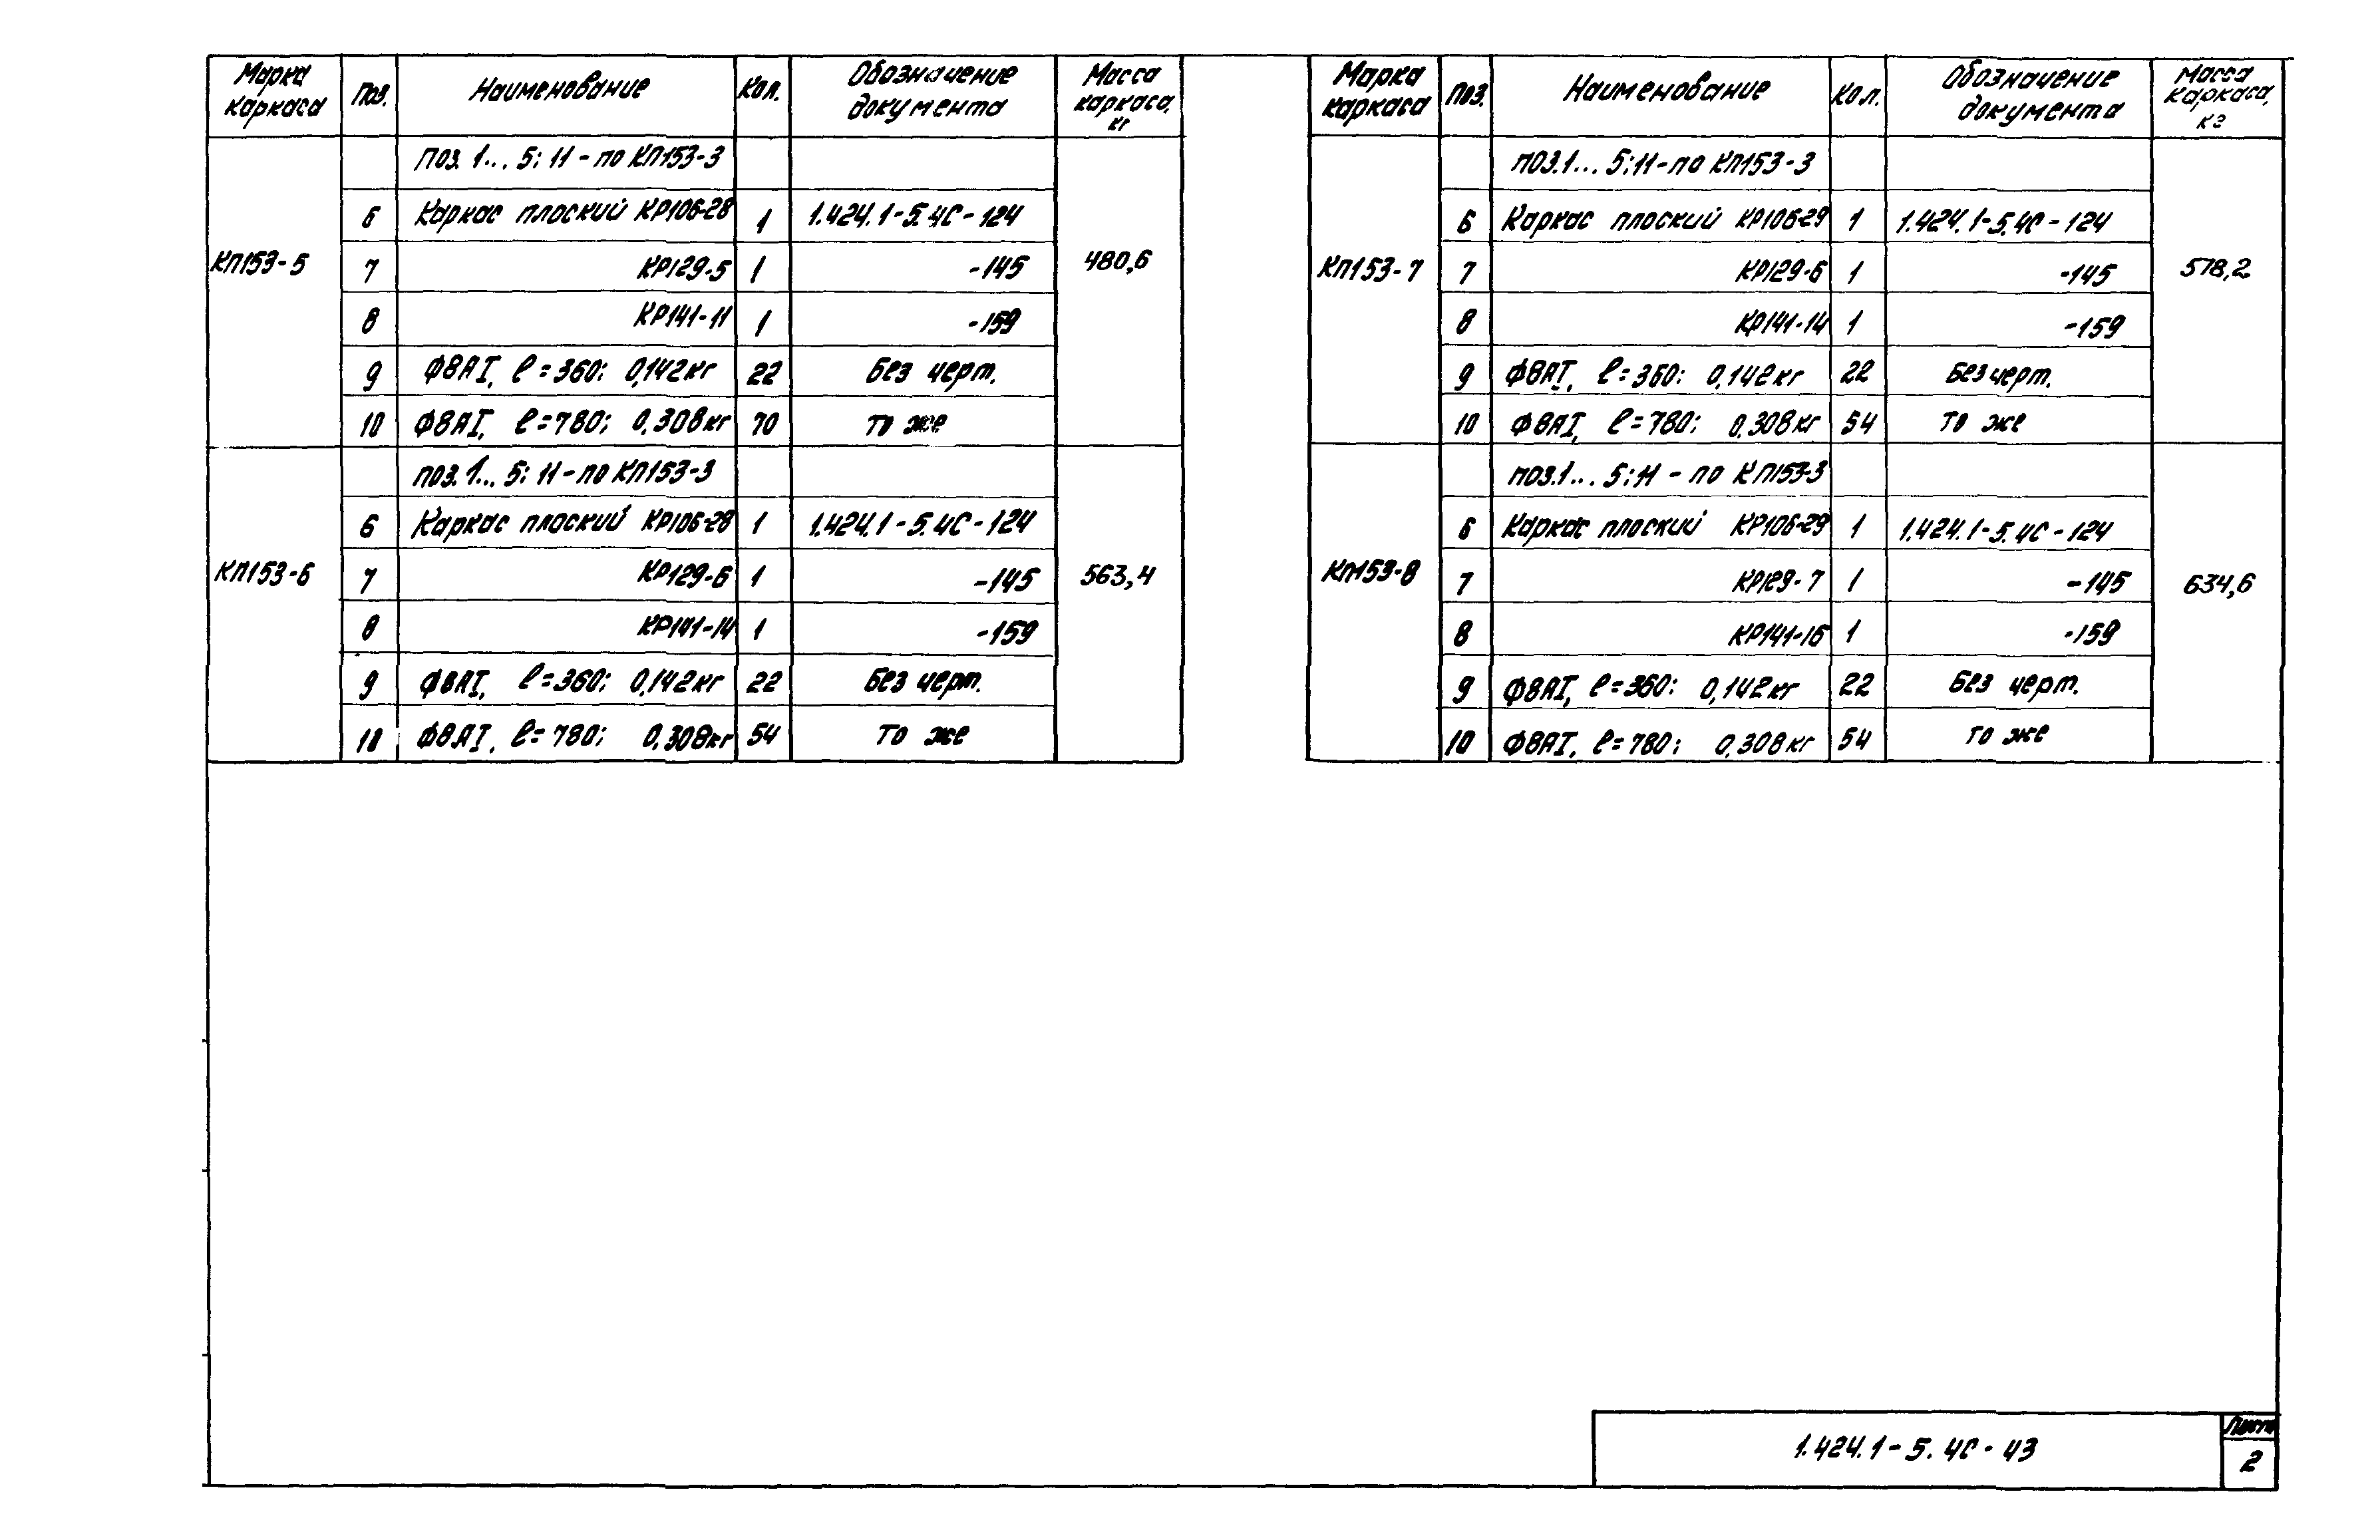 Марка каркаса Поз. Наименование Кол. Обозначение документа Масса каркаса, кг
Поз. 1... 5; 11 - по КП153-3
КП153-5 480,6
6 Каркас плоский КР106-28 1 1.424.1-5.4С-124
7 КР129-5 1 -145
8 КР141-11 1 -159
9 Ф8АI, ℓ=360; 0,142кг 22 Без черт.
10 Ф8АI, ℓ=780; 0,308кг 70 То же
поз. 1... 5; 11 - по КП153-3
КП153-6 563,4
6 Каркас плоский КР106-28 1 1.424.1-5.4С-124
7 КР129-6 1 -145
8 КР141-14 1 -159
9 Ф8АI, ℓ=360; 0,142кг 22 Без черт.
10 Ф8АI, ℓ=780; 0,308кг 54 То же
Марка каркаса Поз. Наименование Кол. Обозначение документа Масса каркаса, кг
поз. 1... 5; 11 - по КП153-3
КП153-7 578,2
6 Каркас плоский КР106-29 1 1.424.1-5.4С-124
7 КР129-6 1 -145
8 КР141-14 1 -159
9 Ф8АI, ℓ=360; 0,142кг 22 Без черт.
10 Ф8АI, ℓ=780; 0,308кг 54 То же
поз. 1... 5; 11 - по КП153-3
КП153-8 634,6
6 Каркас плоский КР106-29 1 1.424.1-5.4С-124
7 КР129-7 1 -145
8 КР141-16 1 -159
9 Ф8АI, ℓ=360; 0,142кг 22 Без черт.
10 Ф8АI, ℓ=780; 0,308кг 54 То же
1.424.1-5.4С-43
Лист
2